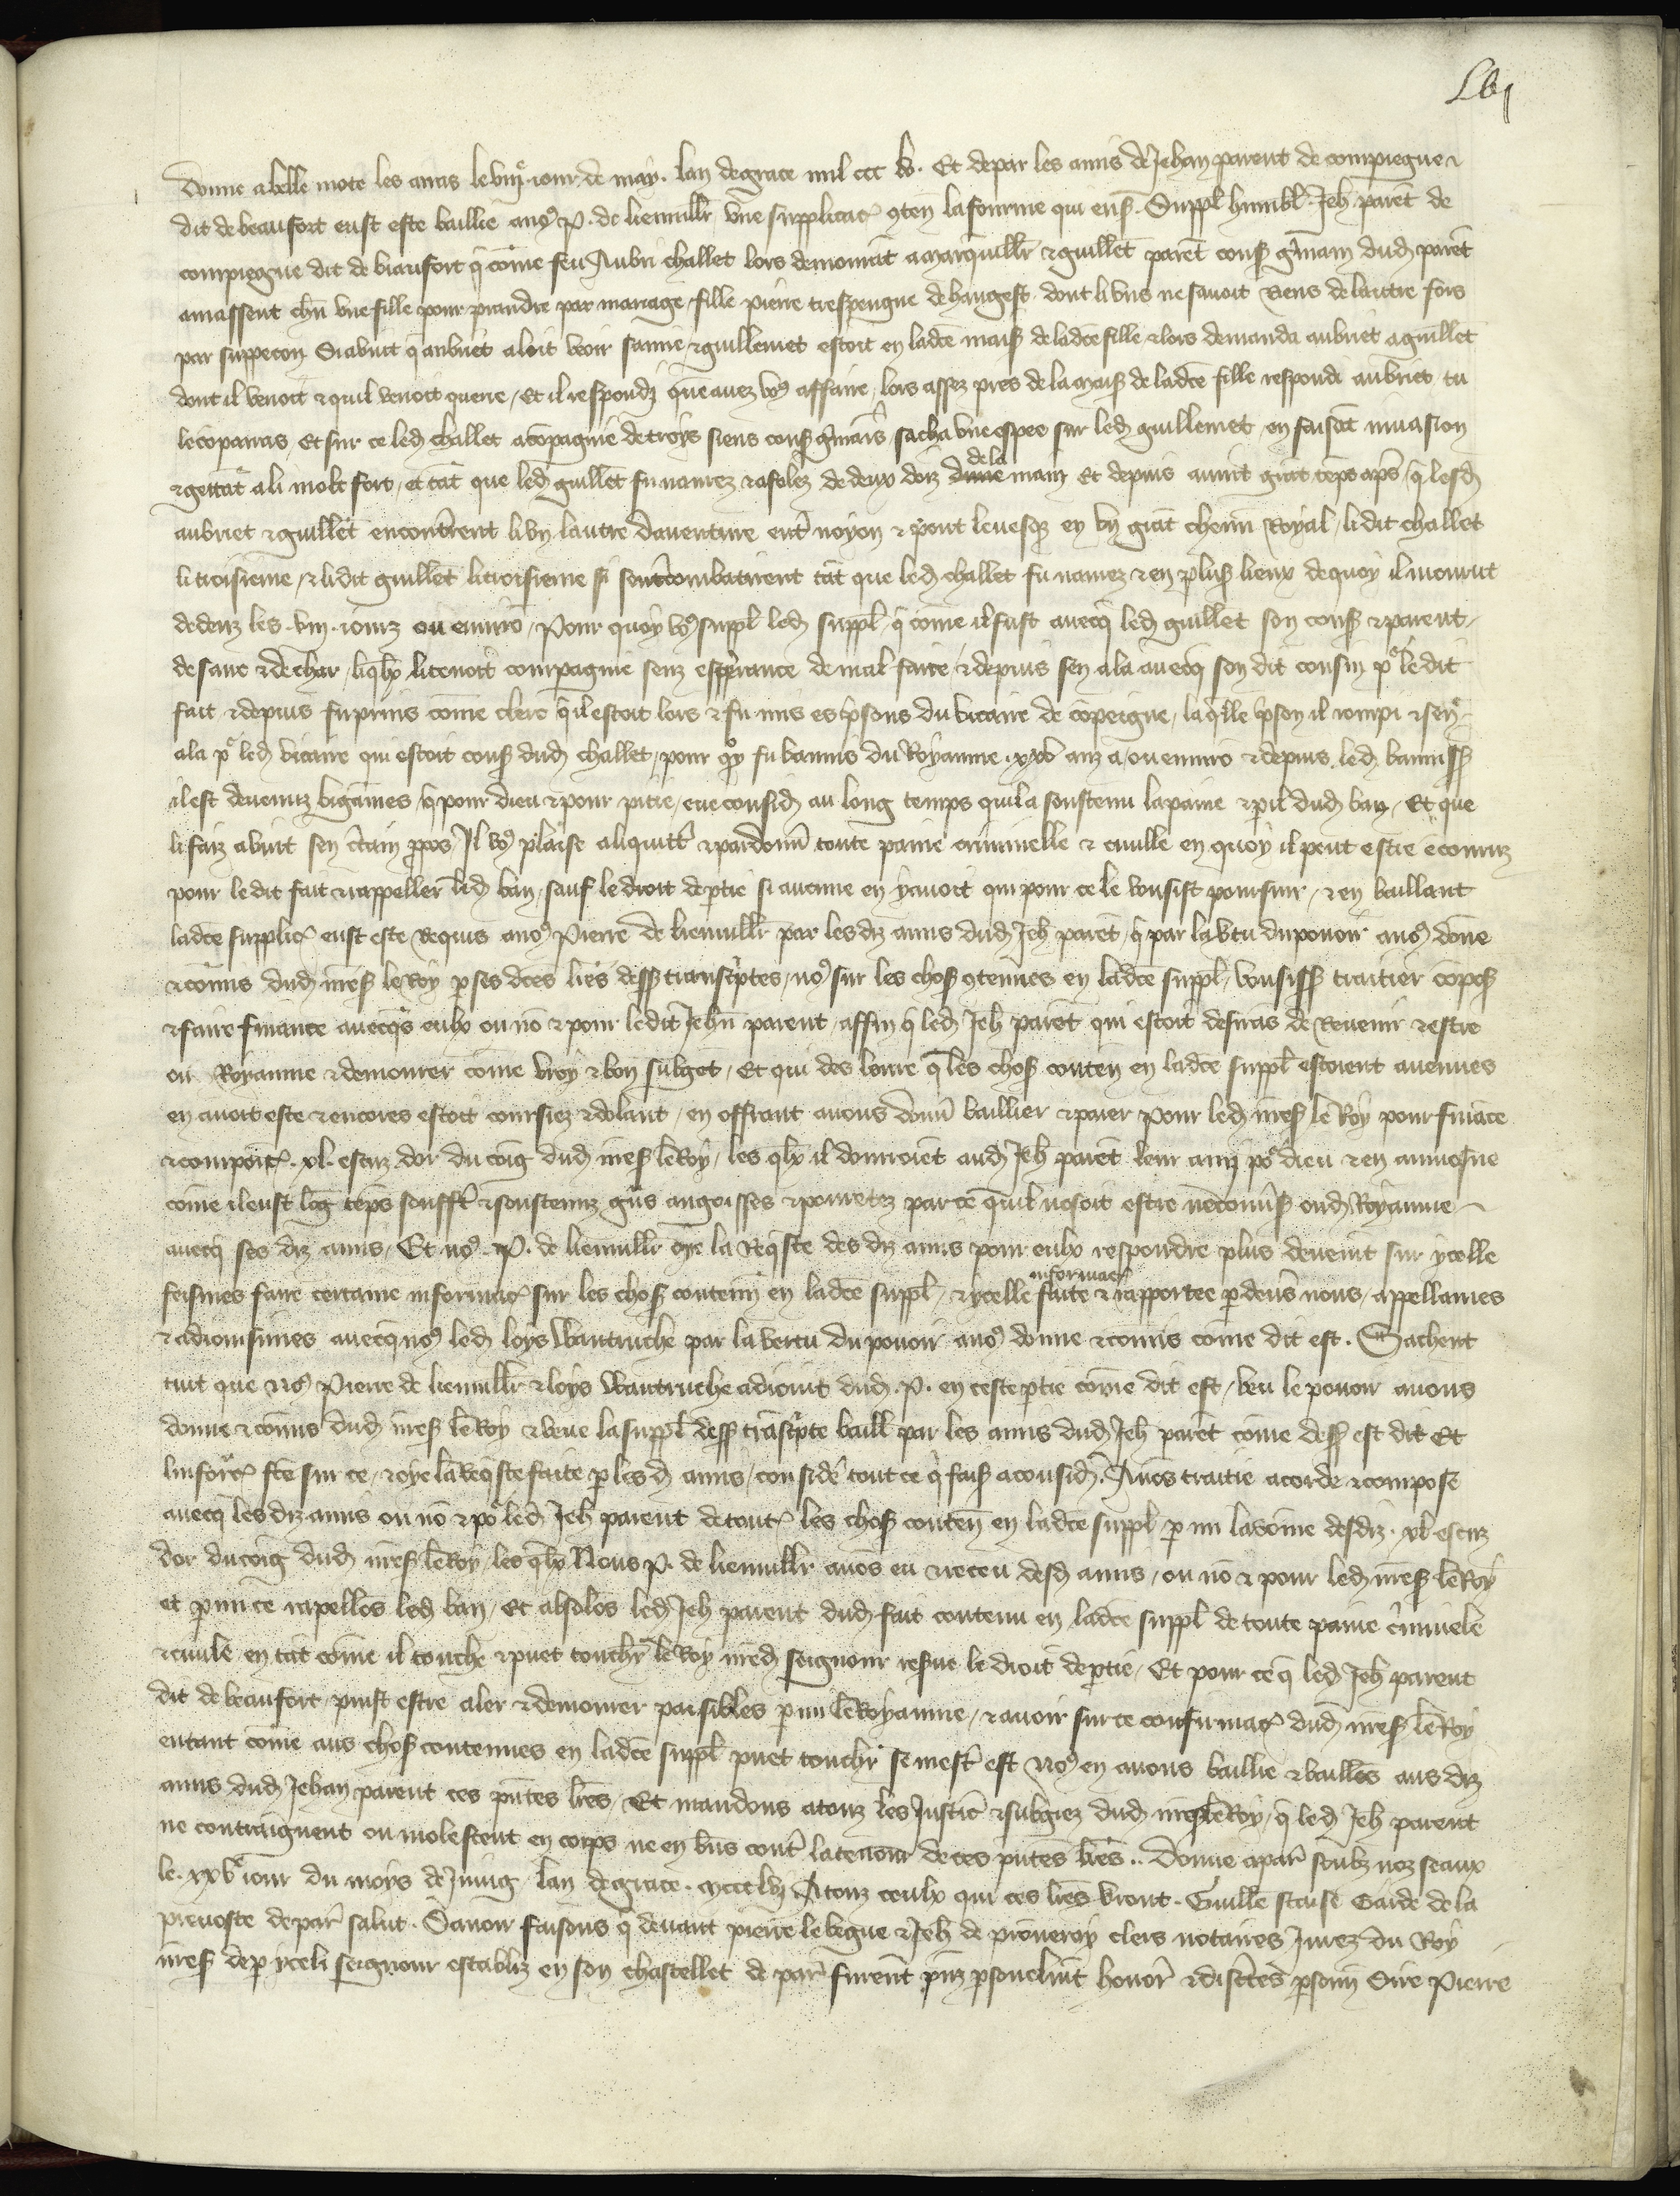 Lvj
donne a belle mote les amis le viije jour de may lan de grace mil ccc lv. Et de par les amis de Jehan parent de compiegne
dit de beaufort eust este baillie a nos P. de lieuvillr une supplicac conten la fourme qui ens. Suppl humbl Jeh paret de
compiegne dit de biaufort q come feu Aubri challet lors demourat a marquillr & guillet paret cous gmain dud paret
amassent chun une fille pour prandre par mariage fille pierre trespengne de hangest dont li uns ne savoit Riens de lauttre fors
par suppecon Si avint q aubriet aloit veoir samie & guillemet estoit en ladce mais de ladce fille & lors demanda aubriet a guillet
dont il venoit & quil venoit querre Et il respondi que avez vos affaire lors assez pres de la mais de ladce fille respondi aubriet tu
le coparras Et sur ce led challet acopagnie de troys siens cous gmais sacha une espee sur led guillemet en faisat invasion
& gettat a li molt fort et tat que led guillet fu navrez & afolez de deux doiz dune de la main Et depuis avint grat teps aps q lesd
aubriet & guillet encontrerent li un lautre daventure entr noyon & pont levesq en un grat chemi Royal li dit challet
li troisieme & li dit guillet li troisieme si sentrecombatirent tat que led challet fu navrez & en plus lieux de quoy il mourut
dedenz les viij iourz ou enviro Pour quoy vos suppl led suppl q come il fust avecq led guillet son cous & parent
de sanc & de char liqlx li tenoit compagnie senz esperance de mal faire & depuis sen ala avecq son dit cousin po le dit
fait & depuis fu prins come clerc q il estoit lors & fu mis es psons du vicaire de copeigne laqlle pson il rompi & sen
ala po led vicaire qui estoit cous dud challet pour qoy fu bannis du Royaume xxv anz a ou enviro & depuis led banniss
il est devenuz bigames q pour dieu & pour pitie eue consid au long temps quil a soustenu la paine & pil dud ban Et que
li faiz avint sen ctain ppos Il vos plaise a li quittr & pardonn toute paine criminelle & civille en quoy il peut estre encouruz
pour le dit fait & rappeller led ban sauf le droit de ptie si aucune en y avoit qui pour ce le vousist poursuir & en baillant
ladce supplic eust este Requis a nos Pierre de lieuvillr par lesdiz amis dud Jeh paret q par la vtu du pouoir a nos done
& comis dud mess le Roy p ses dces lres dess transcptes nos sur les chos contenues en ladce suppl vousiss traitier copos
& faire finance avecqs eulx ou no & pour ledit Jehn parent affin q led Jeh paret qui estoit desiras de Revenir & estre
ou Royaume & demourer come vroy & bon subget Et qui des loure q les chos conten en ladce suppl estoient avenues
en avoit este & encores estoit coursiez & dolant en offrant a nous donn baillier & paier pour led mess le Roy pour finace
& compoic xl escuz dor du coig dud mess le Roy les qlx il donroiet aud Jeh paret leur ami po dieu & en aumosne
come il eust log teps soufft & soustenuz gns angoisses & povretez par ce quil nosoit estre ne convs oud Royaume
avecq ses diz amis Et nos P. de lieuvillr oye la Reqste des diz amis pour eulx respondre plus deuemt sur ycelle
feismes faire certaine informac sur les chos conten en ladce suppl & ycelle informac faite & rapportee p devs nous appellames
& adioinsimes avecq nos led loys Wantruche par la vertu du pouoir a nos donne & comis come dit est. Sachent
tuit que nos Pierre de lieuvillr & loys Wantruche adioint dud P. en ceste ptie come dit est veu le pouoir a nous
donne & comis dud mess le Roy & veue la suppl dess trascpte baill par les amis dud Jeh paret come dess est dit Et
linforc fte sur ce & oye la Reqste faite p les d amis consider tout ce q fais a consid. Avos traitie acorde & compose
avecq les diz amis ou no & po led Jeh parent de tout les chos conten en ladce suppl p mi la some desdiz xl escuz
dor du coig dud mess le Roy les qlx Nous P. de lieuvillr avos eu & receu desd amis ou no & pour led mess le Roy
et p mi ce rapellos led ban Et absolos led Jeh parent dud fait contenu en ladce suppl de toute paine criminele
& civile en tat come il touche & puet touchr le Roy nred seigneur resve le droit de ptie Et pour ce q led Jeh parent
dit de beaufort puist estre aler & demourer paisibles p mi le Royaume & avoir sur ce confirmac dud mess le Roy
entant come aus chos contenues en ladce suppl puet touchr se mest est nos en avons baillie & baillos aus diz
amis dud Jehan parent ces pntes lres Et mandons a touz les Justic & subgiez dud mess le Roy q led Jeh parent
ne contraignent ou molestent en corps ne en bns contr la teneur de ces pntes lres.. Donne a par soubz noz seaux
le xxve jour du mois de Juing lan de grace mccclvj A touz ceulx qui ces lres vront Guille staise Garde de la
prevoste de par salut. Savoir faisons q devant pierre le begue & Jeh de pronveroy clers notaires Jurez du Roy
mess de p yceli seigneur establiz en son chastellet de par furent pns psonelmt honor & discretes psonn Sire Pierre